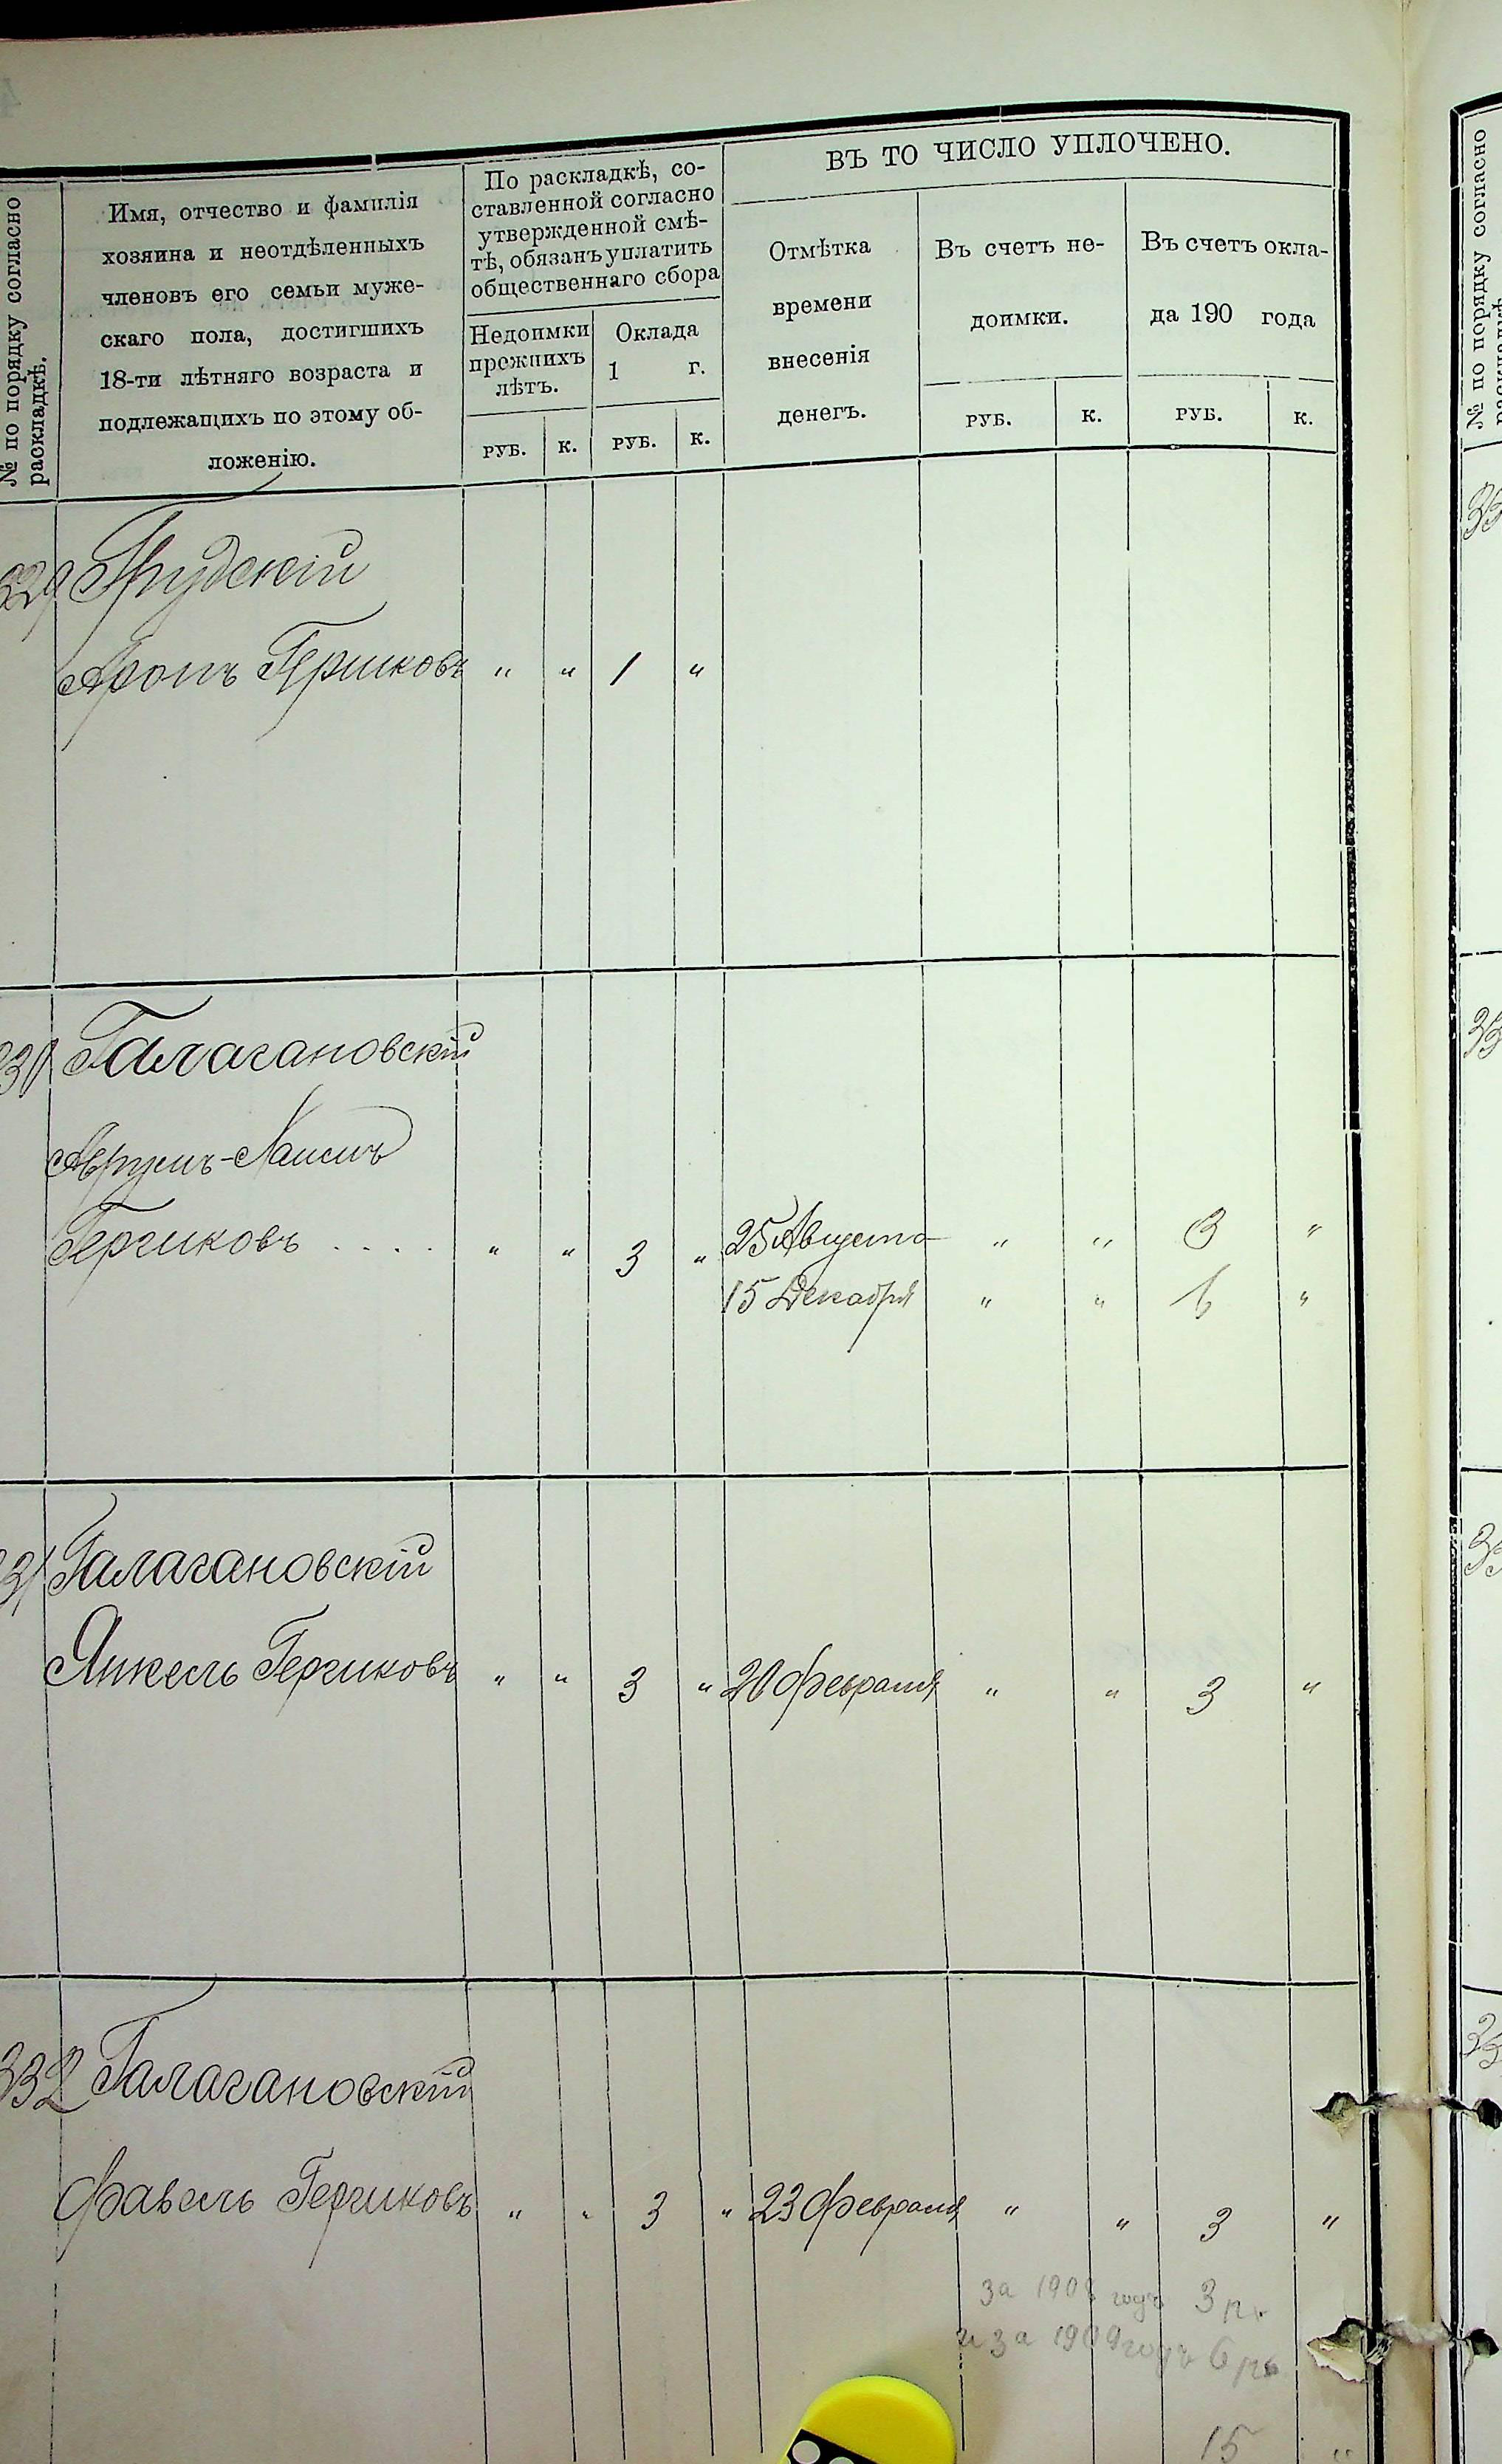 № по порядку согласно
раскладкѣ.
Имя, отчество и фамилія
хозяина и неотдѣленныхъ
членовъ его семьи муже-
скаго пола, достигшихъ
18-ти лѣтняго возраста и
подлежащихъ по этому об-
ложенію.
По раскладкѣ, со-
ставленной согласно
утвержденной смѣ-
тѣ, обязанъ уплатить
общественнаго сбора
Недоимки
прежнихъ
лѣтъ.
РУБ. К.
Оклада
1 г.
РУБ. К.
ВЪ ТО ЧИСЛО УПЛОЧЕНО.
Отмѣтка
времени
внесенія
денегъ.
Въ счетъ не-
доимки.
РУБ. К.
Въ счетъ окла-
да 190 года
РУБ. К.
329 Грудскій
Аронъ Гершковъ " " 1 "
330 Галагановскій
Аврумъ-Хаимъ
Гершковъ . . . . " " 3 " 25 Августа " " "
15 Декабря " " "
331 Галагановскій
Янкель Гершковъ " " 3 " 20 Февраля " " 3 "
332 Галагановскій
Файвель Гершковъ " " 3 " 23 Февраля " " 3 "
за 1908 годъ 3 р.
и за 1909 годъ 6 р.
15 "
№ по порядку согласно